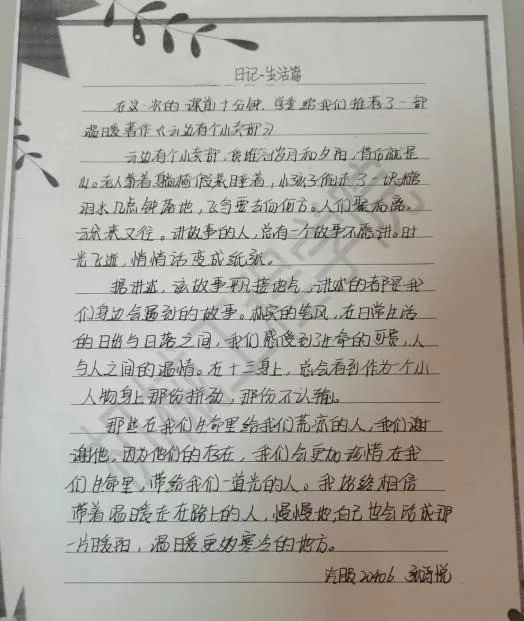 日记-生活篇
在这一次的课前十分钟，学委给我们推荐了一部
温暖著作《云边有个小卖部》
云边有个小卖部，货堆到岁月和夕阳，背后就是
山。老人靠着躺椅假装睡着，小孩子偷走了一块糖
泪水几点钟落地，飞鸟要去向何方。人们聚和离，
云来又往。讲故事的人，总有一个故事不愿讲。时
光飞逝，悄悄话变成纸张。
据讲述，该故事平凡接地气，讲述的都是我
们身边会遇到的故事。朴实的笔风，在日常生活
的日出与日落之间，我们感受到了生命的可贵，人
与人之间的温情。在十三身上，总会看到作为一个小
人物身上那份拼劲，那份不认输。
那些在我们生命里给我们荒凉的人，我们谢
谢他，因为他们的存在，我们会更加珍惜在我
们生命里，带给我们一道光的人。我始终相信
带着温暖走在路上的人，慢慢地，自己也会活成那
一片暖阳，温暖更多寒冷的地方。
汽服20406 诗悦
机械工程学院